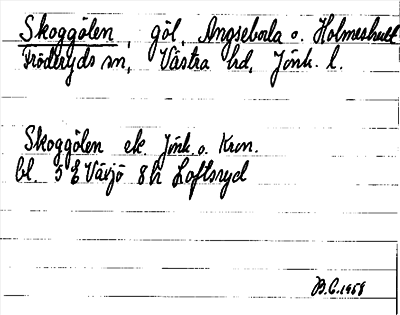 Skoggölen, göl, Angseborla o. Holmeshult
Fröderyds sn, Västra hd, Jönk. l.
Skoggölen ek. Jönk. o. Kron.
bl. 5 E Växjö 8 h Loftsryd
B.C. 1958